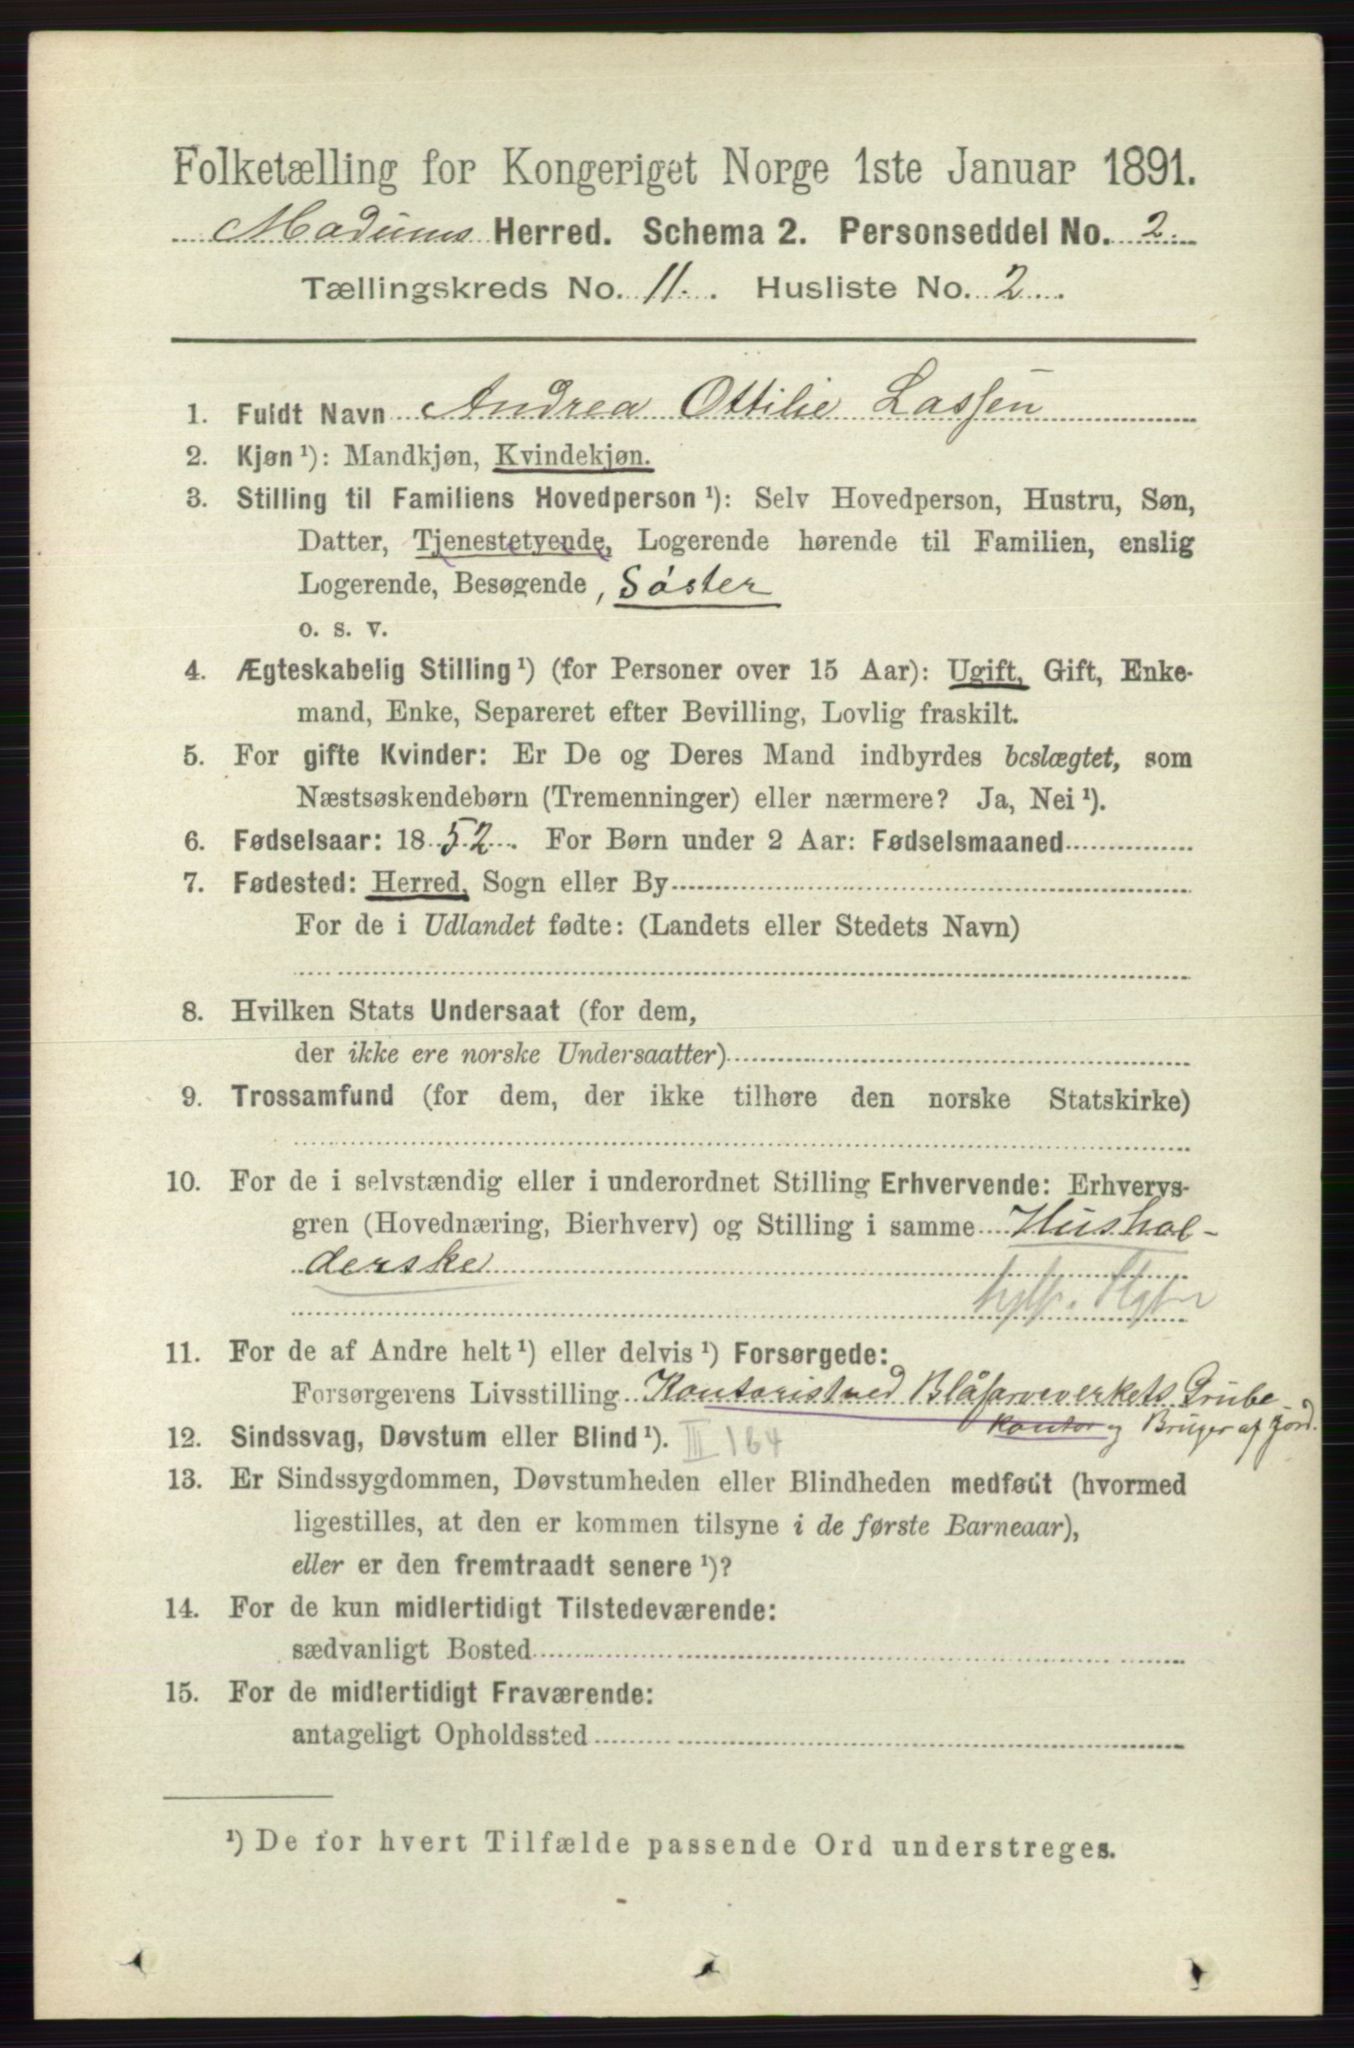 Folketælling for Kongeriget Norge 1ste Januar 1891.
Modums Herred. Schema 2. Personseddel No. 2
Tællingskreds No. 11. Husliste No. 2
1. Fuldt Navn Andrea Ottilie Lassen
2. Kjøn ¹): Mandkjøn, Kvindekjøn.
3. Stilling til Familiens Hovedperson ¹): Selv Hovedperson, Hustru, Søn,
Datter, Tjenestetyende, Logerende hørende til Familien, enslig
Logerende, Besøgende, Søster
o. s. v.
4. Ægteskabelig Stilling ¹) (for Personer over 15 Aar): Ugift, Gift, Enke-
mand, Enke, Separeret efter Bevilling, Lovlig fraskilt.
5. For gifte Kvinder: Er De og Deres Mand indbyrdes beslægtet, som
Næstsøskendebørn (Tremenninger) eller nærmere? Ja, Nei ¹).
6. Fødselsaar: 1852. For Børn under 2 Aar: Fødselsmaaned
7. Fødested: Herred, Sogn eller By
For de i Udlandet fødte: (Landets eller Stedets Navn)
8. Hvilken Stats Undersaat (for dem,
der ikke ere norske Undersaatter)
9. Trossamfund (for dem, der ikke tilhøre den norske Statskirke)
10. For de i selvstændig eller i underordnet Stilling Erhvervende: Erhvervs-
gren (Hovednæring, Bierhverv) og Stilling i samme Hushol-
derske
11. For de af Andre helt ¹) eller delvis ¹) Forsørgede:
Forsørgerens Livsstilling Kontorist ved Blåfarveverkets Grube-
kontor og Bruger af Jord.
12. Sindssvag, Døvstum eller Blind ¹). III 164
13. Er Sindssygdommen, Døvstumheden eller Blindheden medfødt (hvormed
ligestilles, at den er kommen tilsyne i de første Barneaar),
eller er den fremtraadt senere ¹)?
14. For de kun midlertidigt Tilstedeværende:
sædvanligt Bosted
15. For de midlertidigt Fraværende:
antageligt Opholdssted
¹) De for hvert Tilfælde passende Ord understreges.